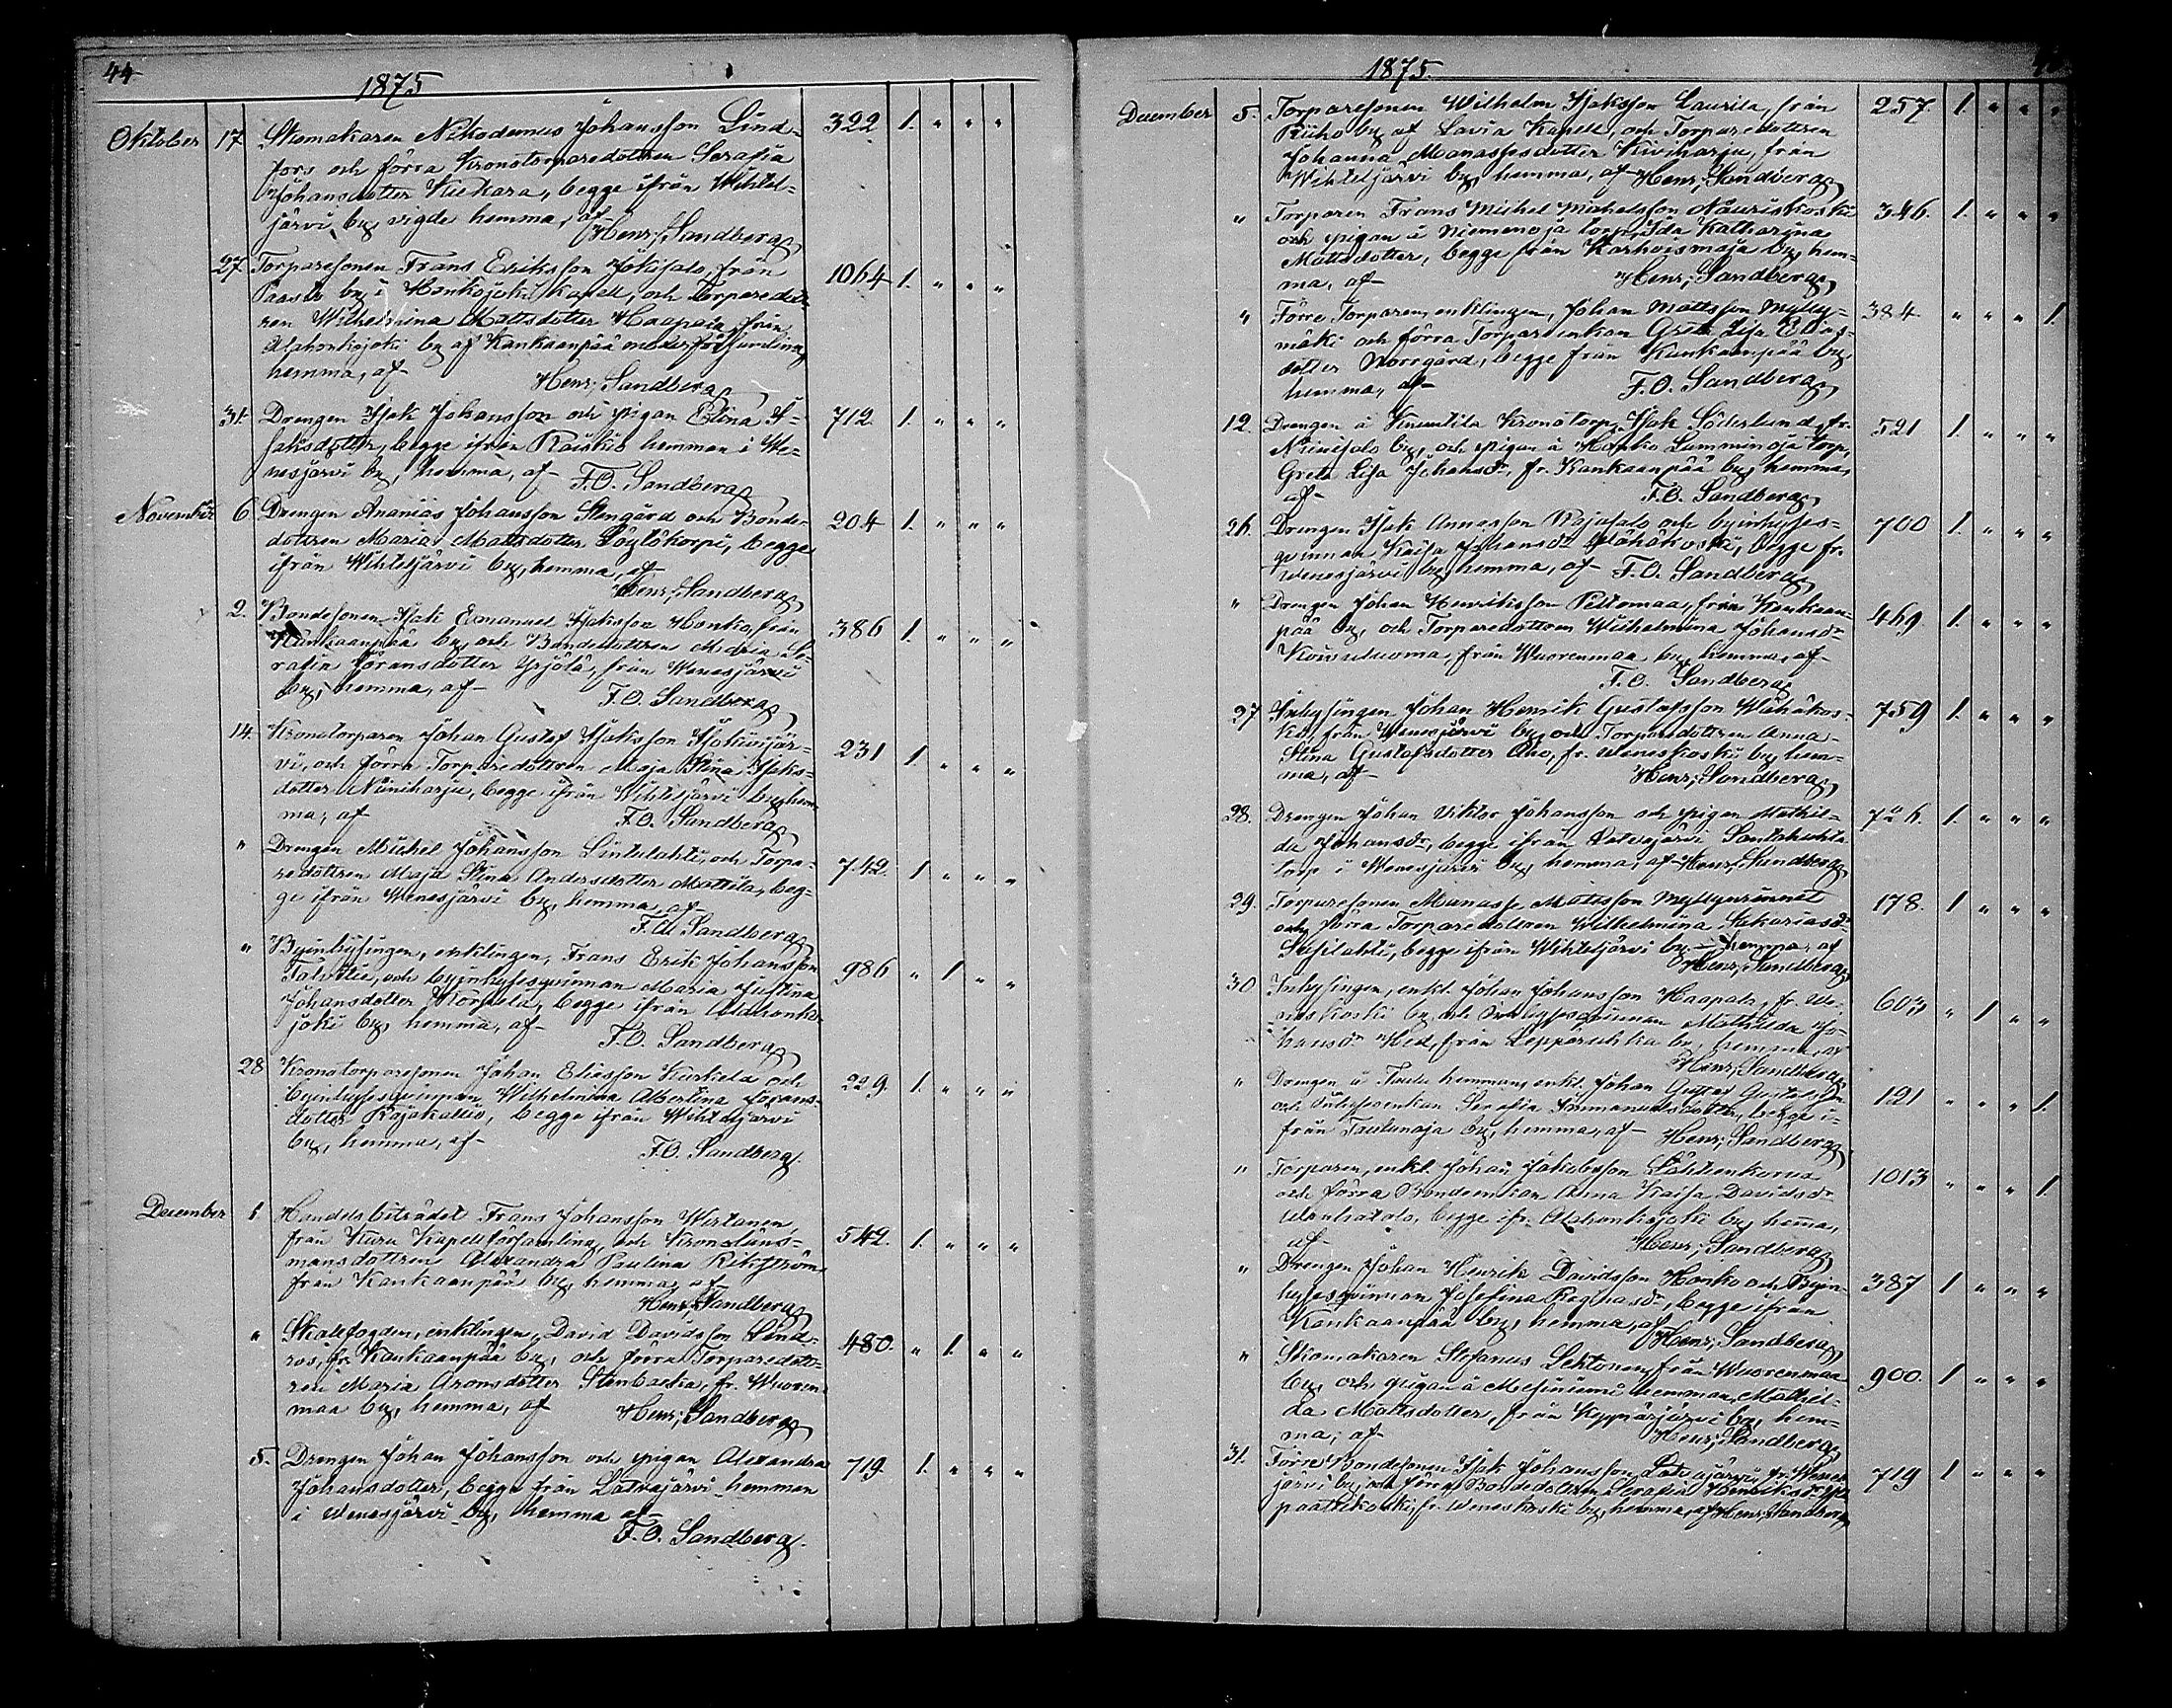 44
1875
Oktober 17 Skomakaren Nikodemus Johansson Lind- 322 1. " " "
fors och förra Kronotorparedottren Serafia
Johansdotter Kuckara, begge ifrån Wihtel-
järvi by, vigde hemma, af
Henr; Sandberg
27 Torparesonen Frans Eriksson Jokisalo, från 1064 1. " " "
by i Honkajoki Kapell, och Torparedott-
ren Wilhelmina Mattsdotter Haapala, från
Alahonkajoki by af Kankaanpää moderförsamling
hemma, af
Henr; Sandberg
31. Drengen Isak Johansson och pigan Elina I- 712. 1. " " "
saksdotter, begge ifrån Raiskio hemman i We-
nesjärvi by, hemma, af F.O. Sandberg
November 6 Drengen Ananias Johansson Stengård och Bonde- 204 1. " " "
dottren Maria Mattsdotter Löytökorpi, begge
ifrån Wihteljärvi by, hemma, af
Henr; Sandberg
2. Bondesonen Isak Emanuel Isaksson Honko, från 386 1. " " "
Kankaanpää by, och Bondedottren Maria Se-
rafia Göransdotter Yrjölä, från Wenesjärvi
by, hemma, af F.O. Sandberg
14. Kronotorparen Johan Gustaf Isaksson 231 1. " " "
vi, och förra Torparedottren Maja Stina Isaks-
dotter Niiniharju, begge ifrån Wihteljärvi by, hem-
ma, af F.O. Sandberg
" Drengen Michel Johansson Lintulahti, och Torpa- 742. 1 " " "
redottren Maja Stina Andersdotter Mattila, beg-
ge ifrån Wenesjärvi by, hemma, af
F.O. Sandberg
" Byinhysingen, enklingen, Frans Erik Johansson 986 " 1 " "
och byinhysesqvinnan Maria Justina
Johansdotter Korpela, begge ifrån Alahonka-
joki by, hemma, af F.O. Sandberg
28 Kronotorparesonen Johan Eliasson Kurkela och 229. 1. " " "
byinhysesqvinnan Wilhelmina Albertina Görans-
dotter Rajakallio, begge ifrån Wihteljärvi
by, hemma, af F.O. Sandberg.
December 1 Handelsbiträdet Frans Johansson Wirtanen, 542. 1. " " "
från Kuru Kapellförsamling, och Kronoläns-
mansdottren Alexandra Paulina Rikström
från Kankaanpää by, hemma, af
Henr; Sandberg
" Skallfogden, enklingen, David Davidsson Lind- 480. " 1. " "
ros, fr. Kankaanpää by, och förra Torparedott-
ren Maria Aronsdotter Stenbacka, fr. Wuoren-
maa by, hemma, af Henr; Sandberg
5. Drengen Johan Johansson och pigan Alexandra 719 1. " " "
Johansdotter, begge från Latvajärvi hemman
i Wenesjärvi by, hemma af
F.O. Sandberg.
1875.
December 5. Torparesonen Wilhelm Isaksson Laurila, från 257 1. " " "
Riiho by af Lavia Kapell, och Torparedottren
Johanna Manassesdotter Kiviharju, från
Wihteljärvi by, hemma, af Henr; Sandberg
" Torparen Frans Mikel Mikelsson Nauriskoski 346. 1. " " "
och pigan å Niemenoja torp, Ida Katharina
Mattsdotter, begge från Karhoismaja by, hem-
ma, af Henr; Sandberg
" Förre Torparen, enklingen, Johan Mattsson Mylly- 384 " " " 1.
mäki och förra Torparenkan Greta Lisa Elias-
dotter Norrgård, begge från Kankaanpää by,
hemma, af F.O. Sandberg
12. Drengen å Kronotorp, Isak Söderlund, fr. 521 1. " " "
Niinisalo by, och pigan å Honko Lamminoja torp,
Greta Lisa Johansdr, fr. Kankaanpää by, hemma,
af F.O. Sandberg
26. Drengen Isak Annasson Rajasalo och byinhyses- 700 1. " " "
qvinnan Kaisa Johansdr Wähäkoski, begge fr.
Wenesjärvi by, hemma, af F.O. Sandberg
" Drengen Johan Henriksson Peltomaa, från Kankaan- 469. 1. " " "
pää by, och Torparedottren Wilhelmina Johansdr
Koivuluoma, från Wuorenmaa by, hemma, af
F.O. Sandberg
27. Inhysingen Johan Henrik Gustafsson Wähäkos- 759 1. " " "
ki, från Wenesjärvi by, och Torparedottren Anna
Stina Gustafsdotter Aho, fr. Weneskoski by, hem-
ma, af Henr; Sandberg
28. Drengen Johan Viktor Johansson och pigan Mathil- 726. 1. " " "
da Johansdr, begge ifrån Latvajärvi Santahuhta
torp i Wenesjärvi by, hemma, af Henr; Sandberg
29. Torparesonen Manasse Mattsson Myllynrinnet 178. 1 " " "
och förra Torparedottren Wilhelmina Sakariasdr
Susilahti, begge ifrån Wihteljärvi by, hemma, af
Henr; Sandberg
30 Inhysingen, enkl. Johan Johansson Haapala, fr. We- 603 " 1 " "
neskoski by, och Inhysesqvinnan Mathilda Jo-
hansdr Hed, från Leppäruhka by, hemma, af
Henr; Sandberg
" Drengen å Taulu hemman, enkl. Johan Gustaf Gustafsson 121 " " " 1.
och Inhysesenkan Serafia Immanuelsdotter, begge i-
från Taulunoja by, hemma, af Henr; Sandberg
" Torparen, enkl. Johan Jakobsson Lähteenkorva 1013 " " " 1.
och förra Bondeenkan Anna Kaisa Davidsdr
begge ifr. Alahonkajoki by, hema,
af Henr; Sandberg
" Drengen Johan Henrik Davidsson Honko och Byin- 387 1 " " "
hysesqvinnan Josefina Regnasdr, begge ifrån
Kankaanpää by, hemma, af
Henr; Sandberg
" Skomakaren Stefanus Lehtonen, från Wuorenmaa 900. 1 " " "
by, och pigan å Mesiniemi hemman, Mathil-
da Mattsdotter, från Wenesjärvi by, hem-
ma, af Henr; Sandberg
31. Förre Bondesonen Isak Johansson Latvajärvi, fr. Wenes- 719 1 " " "
järvi by, och förra Bondedottren Serafia Henriksdr
fr. Weneskoski by, hemma, af Henr; Sandberg